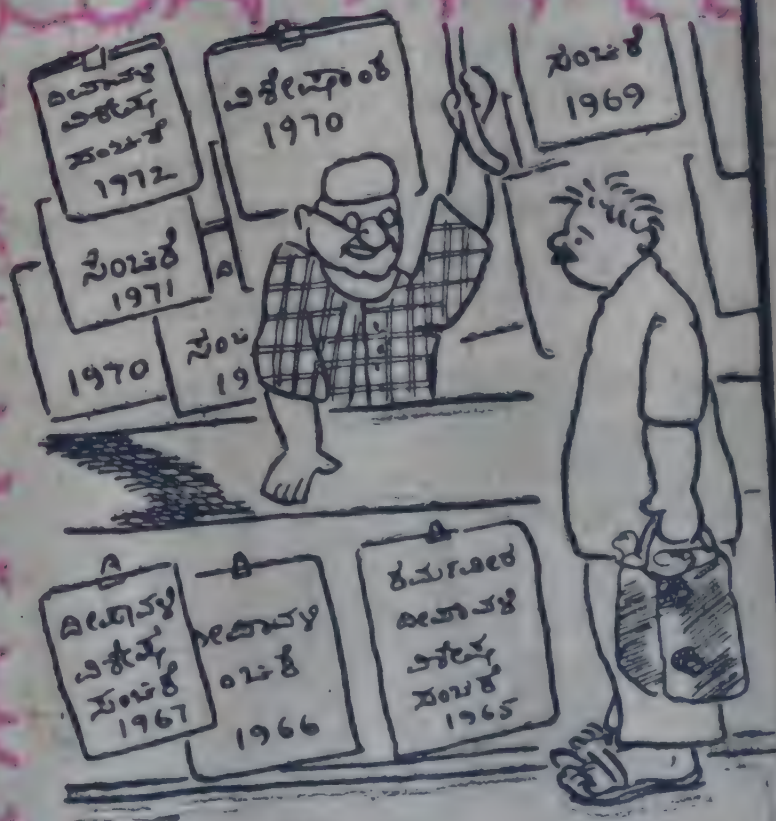 ದೀಪಾವಳಿ
ವಿಶೇಷ
ಸಂಚಿಕೆ
1972
ವಿಶೇಷಾಂಕ
1970
ಸಂಚಿಕೆ
1969
ಸಂಚಿಕೆ
1971
1970
ಸಂಚಿ
19
ದೀಪಾವಳಿ
ವಿಶೇಷ
ಸಂಚಿಕೆ
1967
ೀಪಾವಳಿ
ಂಚಿಕೆ
1966
ಕರ್ಮವೀರ
ದೀಪಾವಳಿ
ವಿಶೇಷ
ಸಂಚಿಕೆ
1965